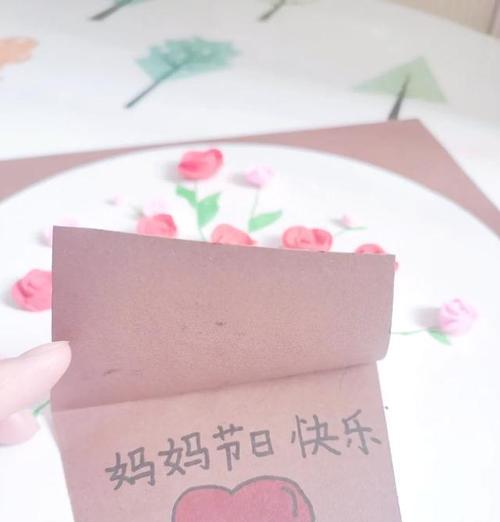 妈妈节日快乐